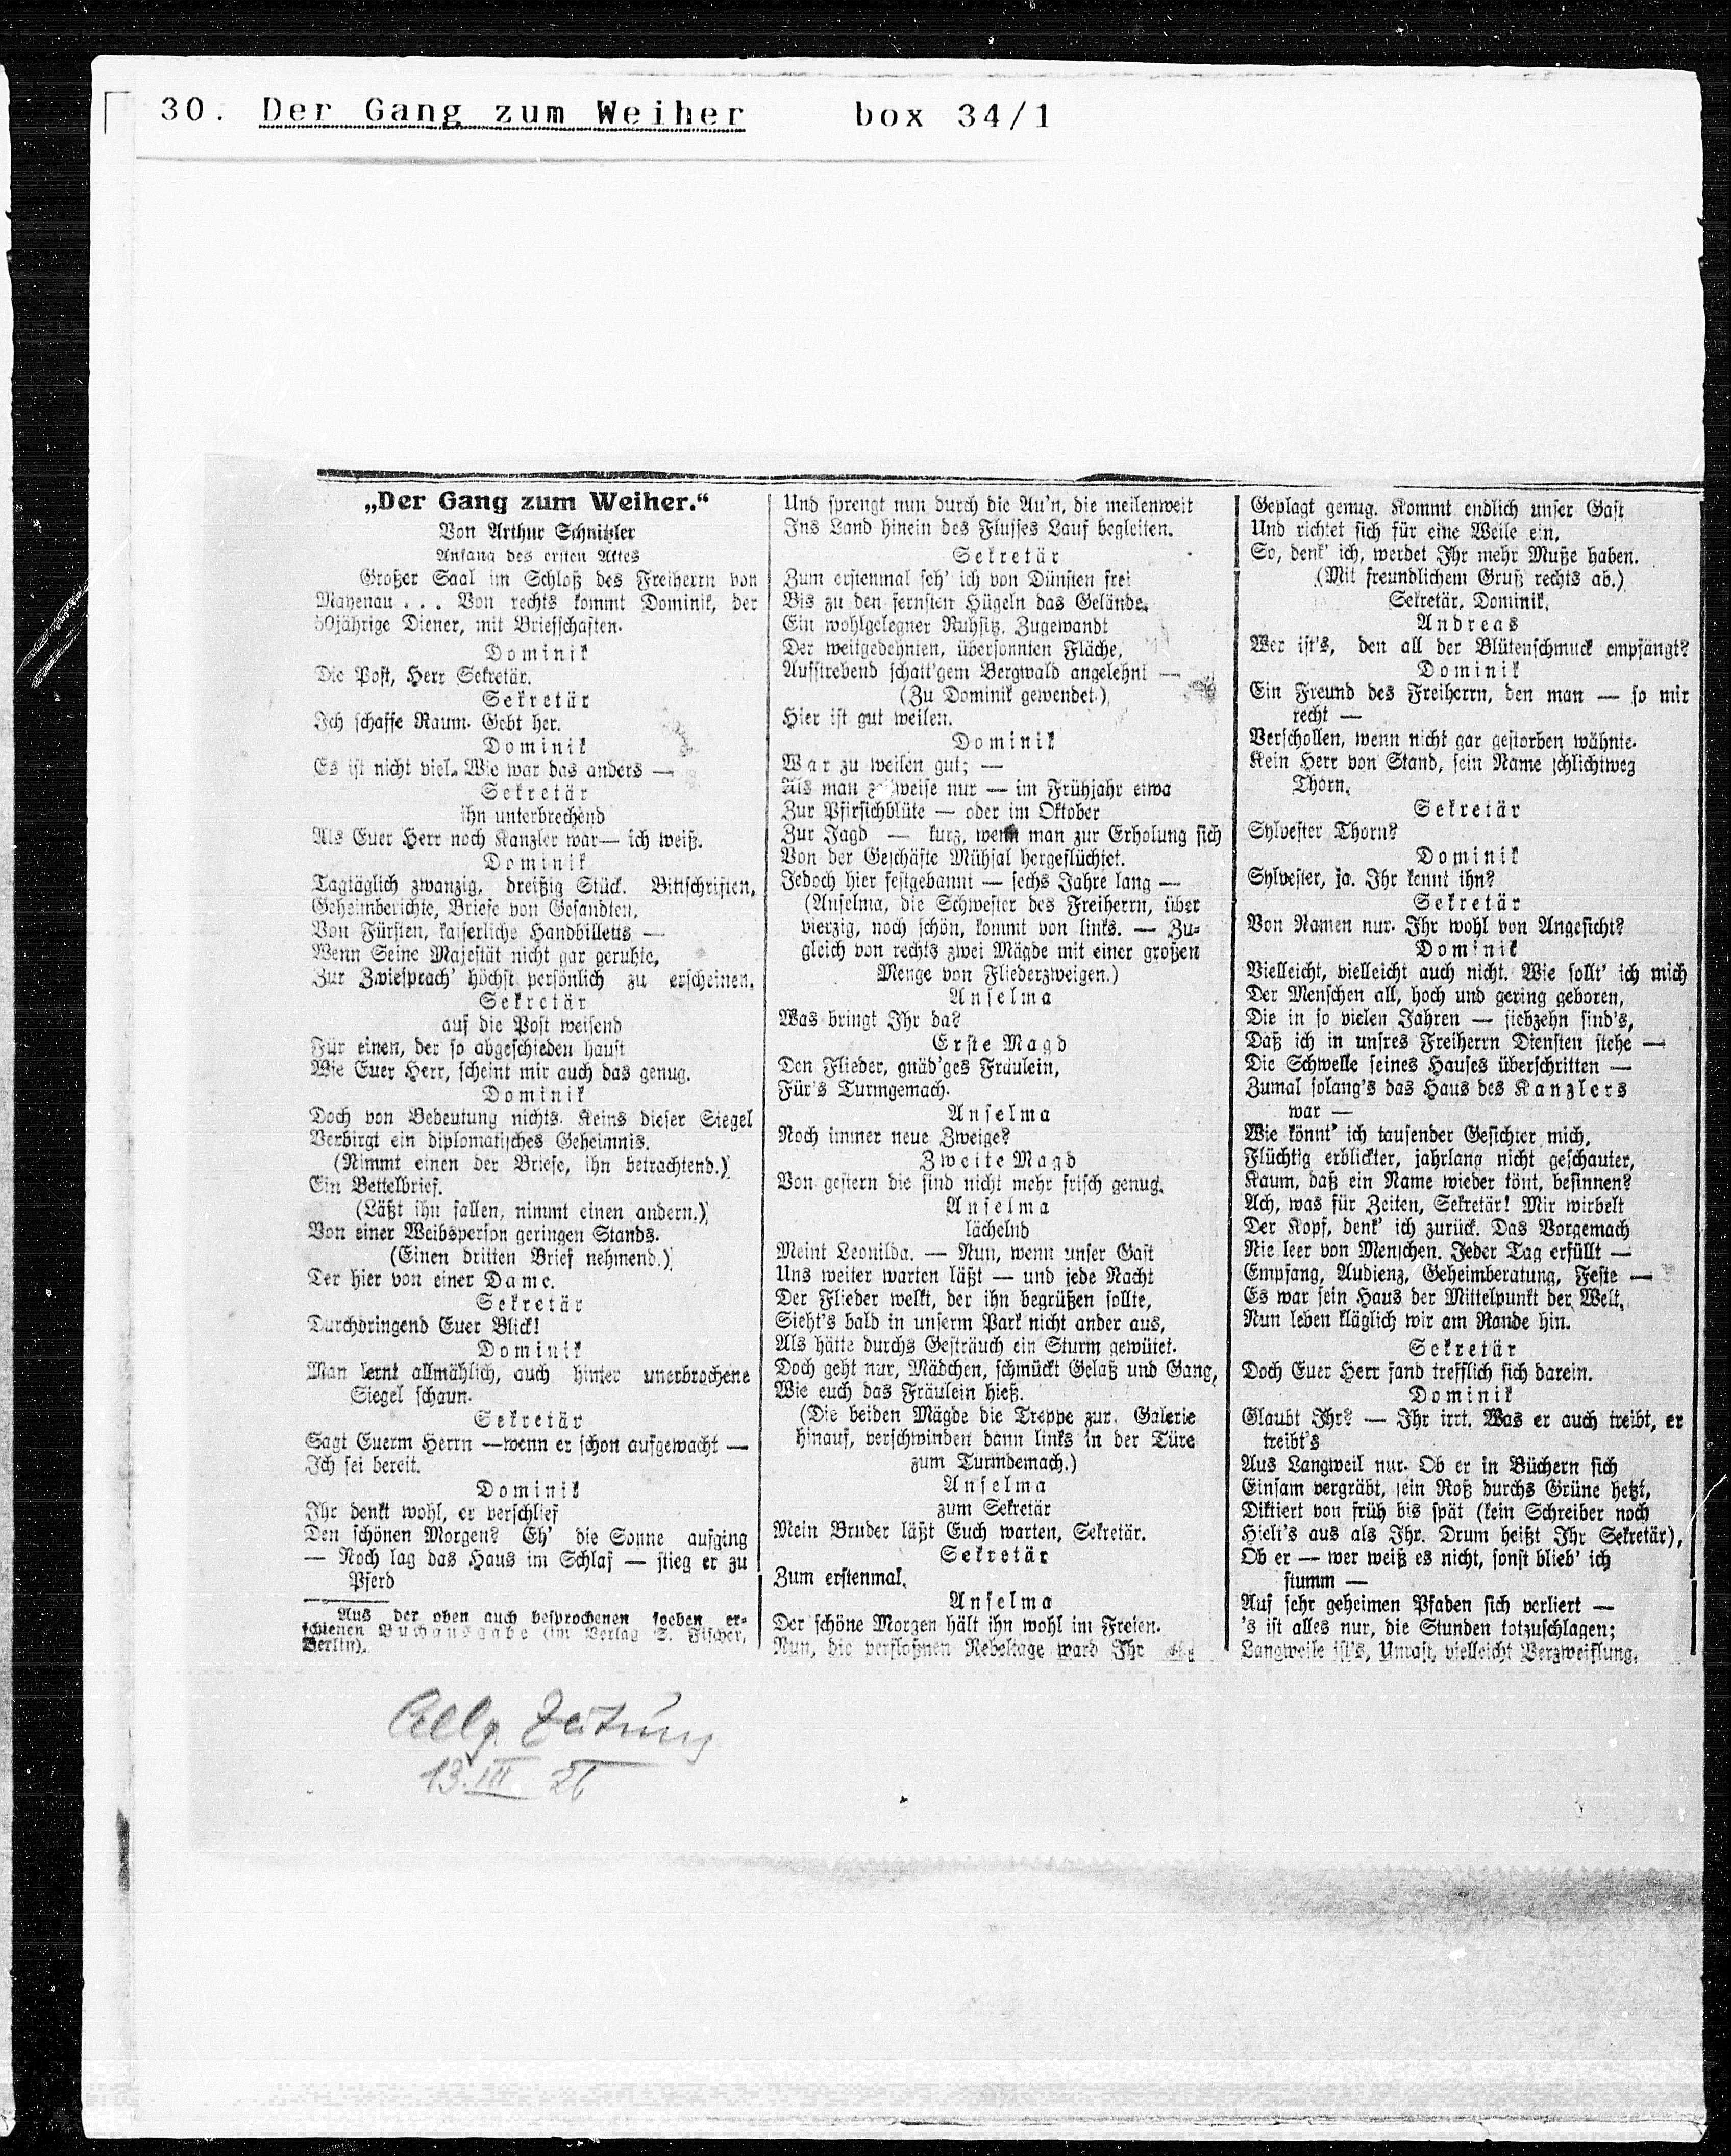 30. Der Gang zum Weiher box 34/1
„Der Gang zum Weiher.“
Von Arthur Schnitzler
Anfang des ersten Aktes
Großer Saal im Schloß des Freiherrn von
Mayenau . . . Von rechts kommt Dominik, der
50jährige Diener, mit Briefschaften.
Dominik
Die Post, Herr Sekretär.
Sekretär
Ich schaffe Raum. Gebt her.
Dominik
Es ist nicht viel. Wie war das anders —
Sekretär
ihn unterbrechend
Als Euer Herr noch Kanzler war— ich weiß.
Dominik
Tagtäglich zwanzig, dreißig Stück. Bittschriften,
Geheimberichte, Briefe von Gesandten,
Von Fürsten, kaiserliche Handbilletts —
Wenn Seine Majestät nicht gar geruhte,
Zur Zwiesprach' höchst persönlich zu erscheinen.
Sekretär
auf die Post weisend
Für einen, der so abgeschieden haust
Wie Euer Herr, scheint mir auch das genug.
Dominik
Doch von Bedeutung nichts. Keins dieser Siegel
Verbirgt ein diplomatisches Geheimnis.
(Nimmt einen der Briefe, ihn betrachtend.)
Ein Bettelbrief.
(Läßt ihn fallen, nimmt einen andern.)
Von einer Weibsperson geringen Stands.
(Einen dritten Brief nehmend.)
Der hier von einer Dame.
Sekretär
Durchdringend Euer Blick!
Dominik
Man lernt allmählich, auch hinter unerbrochene
Siegel schaun.
Sekretär
Sagt Euerm Herrn —wenn er schon aufgewacht —
Ich sei bereit.
Dominik
Ihr denkt wohl, er verschlief
Den schönen Morgen? Eh' die Sonne aufging
— Noch lag das Haus im Schlaf — stieg er zu
Pferd
Aus der oben auch besprochenen soeben er-
schienen Buchausgabe (im Verlag S. Fischer,
Berlin).
Und sprengt nun durch die Au'n, die meilenweit
Ins Land hinein des Flusses Lauf begleiten.
Sekretär
Zum erstenmal seh' ich von Dünsten frei
Bis zu den fernsten Hügeln das Gelände.
Ein wohlgelegner Ruhsitz. Zugewandt
Der weitgedehnten, übersonnten Fläche,
Aufstrebend schatt'gem Bergwald angelehnt —
(Zu Dominik gewendet.)
Hier ist gut weilen.
Dominik
War zu weilen gut; —
Als man zeitweise nur — im Frühjahr etwa
Zur Pfirsichblüte — oder im Oktober
Zur Jagd — kurz, wenn man zur Erholung sich
Von der Geschäfte Mühsal hergeflüchtet.
Jedoch hier festgebannt — sechs Jahre lang —
(Anselma, die Schwester des Freiherrn, über
vierzig, noch schön, kommt von links. — Zu-
gleich von rechts zwei Mägde mit einer großen
Menge von Fliederzweigen.)
Anselma
Was bringt Ihr da?
Erste Magd
Den Flieder, gnäd'ges Fräulein,
Für's Turmgemach.
Anselma
Noch immer neue Zweige?
Zweite Magd
Von gestern die sind nicht mehr frisch genug.
Anselma
lächelnd
Meint Leonilda. — Nun, wenn unser Gast
Uns weiter warten läßt — und jede Nacht
Der Flieder welkt, der ihn begrüßen sollte,
Sieht's bald in unserm Park nicht ander aus,
Als hätte durchs Gesträuch ein Sturm gewütet.
Doch geht nur, Mädchen, schmückt Gelaß und Gang,
Wie euch das Fräulein hieß.
(Die beiden Mägde die Treppe zur Galerie
hinauf, verschwinden dann links in der Türe
zum Turmdemach.)
Anselma
zum Sekretär
Mein Bruder läßt Euch warten, Sekretär.
Sekretär
Zum erstenmal.
Anselma
Der schöne Morgen hält ihn wohl im Freien.
Nun, die verfloßnen Nebeltage ward Ihr
Geplagt genug. Kommt endlich unser Gast
Und richtet sich für eine Weile ein,
So, denk' ich, werdet Ihr mehr Muße haben.
(Mit freundlichem Gruß rechts ab.)
Sekretär, Dominik.
Andreas
Wer ist's, den all der Blütenschmuck empfängt?
Dominik
Ein Freund des Freiherrn, den man — so mir
recht —
Verschollen, wenn nicht gar gestorben wähnte.
Kein Herr von Stand, sein Name schlichtweg
Thorn.
Sekretär
Sylvester Thorn?
Dominik
Sylvester, ja. Ihr kennt ihn?
Sekretär
Von Namen nur. Ihr wohl von Angesicht?
Dominik
Vielleicht, vielleicht auch nicht. Wie sollt' ich mich
Der Menschen all, hoch und gering geboren,
Die in so vielen Jahren — siebzehn sind's,
Daß ich in unsres Freiherrn Diensten stehe —
Die Schwelle seines Hauses überschritten —
Zumal solang's das Haus des Kanzlers
war —
Wie könnt' ich tausender Gesichter mich,
Flüchtig erblickter, jahrlang nicht geschauter,
Kaum, daß ein Name wieder tönt, besinnen?
Ach, was für Zeiten, Sekretär! Mir wirbelt
Der Kopf, denk' ich zurück. Das Vorgemach
Nie leer von Menschen. Jeder Tag erfüllt —
Empfang, Audienz, Geheimberatung, Feste —
Es war sein Haus der Mittelpunkt der Welt,
Nun leben kläglich wir am Rande hin.
Sekretär
Doch Euer Herr fand trefflich sich darein.
Dominik
Glaubt Ihr? — Ihr irrt. Was er auch treibt, er
treibt's
Aus Langweil nur. Ob er in Büchern sich
Einsam vergräbt, sein Roß durchs Grüne hetzt,
Diktiert von früh bis spät (kein Schreiber noch
Hielt's aus als Ihr. Drum heißt Ihr Sekretär),
Ob er — wer weiß es nicht, sonst blieb' ich
stumm —
Auf sehr geheimen Pfaden sich verliert —
's ist alles nur, die Stunden totzuschlagen;
Langweile ist's, Unrast, vielleicht Verzweiflung.
Allg. Zeitung
13. III 26